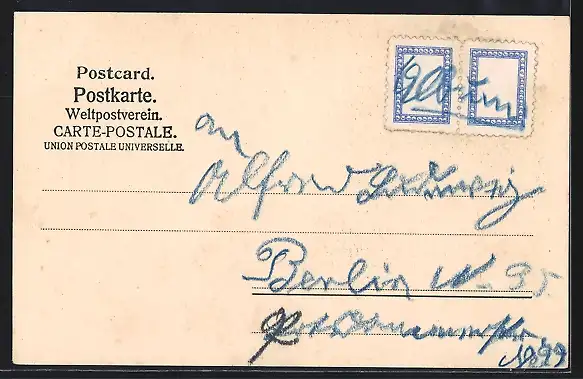 Postcard.
Postkarte.
Weltpostverein.
CARTE-POSTALE.
UNION POSTALE UNIVERSELLE.
an
Alfred Ludwig
Berlin W. 35.